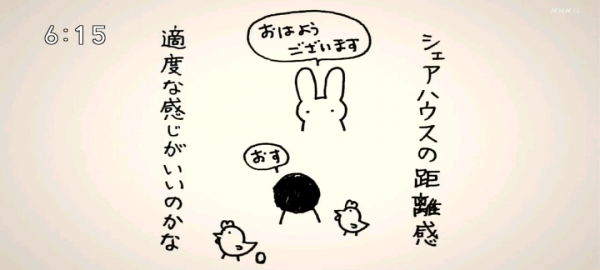 6:15
シェアハウスの距離感
おはよう
ございます
おす
適度な感じがいいのかな